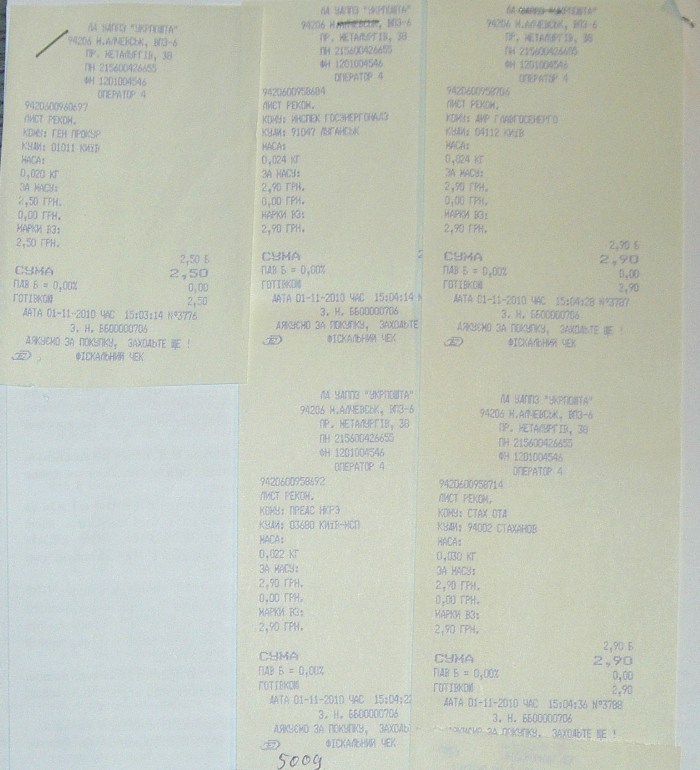 ЛА УАППЗ "УКРПОШТА"
94206 М.АЛЧЕВСЬК, ВПЗ-6
ПР. МЕТАЛУРГІВ, 38
ПН 215600426655
ФН 1201004546
ОПЕРАТОР 4
9420600960697
ЛИСТ РЕКОМ.
КОМУ: ГЕН ПРОКУР
КУДИ: 01011 КИЇВ
МАСА:
0,020 КГ
ЗА МАСУ:
2,50 ГРН.
0,00 ГРН.
МАРКИ ВЗ:
2,50 ГРН.
2,50 Б
СУМА 2,50
ПДВ Б = 0,00% 0,00
ГОТІВКОЮ 2,50
ДАТА 01-11-2010 ЧАС 15:03:14 №3776
З. Н. ББ00000706
ДЯКУЄМО ЗА ПОКУПКУ, ЗАХОДЬТЕ ЩЕ !
ФІСКАЛЬНИЙ ЧЕК
ЛА УАППЗ "УКРПОШТА"
94206 М.АЛЧЕВСЬК, ВПЗ-6
ПР. МЕТАЛУРГІВ, 38
ПН 215600426655
ФН 1201004546
ОПЕРАТОР 4
9420600958684
ЛИСТ РЕКОМ.
КОМУ: ИНСПЕК ГОСЭНЕРГОНАДЗ
КУДИ: 91047 ЛУГАНСЬК
МАСА:
0,024 КГ
ЗА МАСУ:
2,90 ГРН.
0,00 ГРН.
МАРКИ ВЗ:
2,90 ГРН.
СУМА
ПДВ Б = 0,00%
ГОТІВКОЮ
ДАТА 01-11-2010 ЧАС 15:04:14
З. Н. ББ00000706
ДЯКУЄМО ЗА ПОКУПКУ, ЗАХОДЬТЕ
ФІСКАЛЬНИЙ ЧЕК
ЛА УАППЗ "УКРПОШТА"
94206 М.АЛЧЕВСЬК, ВПЗ-6
ПР. МЕТАЛУРГІВ, 38
ПН 215600426655
ФН 1201004546
ОПЕРАТОР 4
9420600958706
ЛИСТ РЕКОМ.
КОМУ: ДИР ГЛАВГОСЕНЕРГО
КУДИ: 04112 КИЇВ
МАСА:
0,024 КГ
ЗА МАСУ:
2,90 ГРН.
0,00 ГРН.
МАРКИ ВЗ:
2,90 ГРН.
2,90 Б
СУМА 2,90
ПДВ Б = 0,00% 0,00
ГОТІВКОЮ 2,90
ДАТА 01-11-2010 ЧАС 15:04:28 №3787
З. Н. ББ00000706
ДЯКУЄМО ЗА ПОКУПКУ, ЗАХОДЬТЕ ЩЕ !
ФІСКАЛЬНИЙ ЧЕК
ЛА УАППЗ "УКРПОШТА"
94206 М.АЛЧЕВСЬК, ВПЗ-6
ПР. МЕТАЛУРГІВ, 38
ПН 215600426655
ФН 1201004546
ОПЕРАТОР 4
9420600958692
ЛИСТ РЕКОМ.
КОМУ: ПРЕДС НКРЭ
КУДИ: 03680 КИЇВ-МСП
МАСА:
0,022 КГ
ЗА МАСУ:
2,90 ГРН.
0,00 ГРН.
МАРКИ ВЗ:
2,90 ГРН.
СУМА
ПДВ Б = 0,00%
ГОТІВКОЮ
ДАТА 01-11-2010 ЧАС 15:04:22
З. Н. ББ00000706
ДЯКУЄМО ЗА ПОКУПКУ,
ФІСКАЛЬНИЙ ЧЕК
5009
ЛА УАППЗ "УКРПОШТА"
94206 М.АЛЧЕВСЬК, ВПЗ-6
ПР. МЕТАЛУРГІВ, 38
ПН 215600426655
ФН 1201004546
ОПЕРАТОР 4
9420600958714
ЛИСТ РЕКОМ.
КОМУ: СТАХ ОТД
КУДИ: 94002 СТАХАНОВ
МАСА:
0,030 КГ
ЗА МАСУ:
2,90 ГРН.
0,00 ГРН.
МАРКИ ВЗ:
2,90 ГРН.
2,90 Б
СУМА 2,90
ПДВ Б = 0,00% 0,00
ГОТІВКОЮ 2,90
ДАТА 01-11-2010 ЧАС 15:04:36 №3788
З. Н. ББ00000706
ДЯКУЄМО ЗА ПОКУПКУ, ЗАХОДЬТЕ ЩЕ !